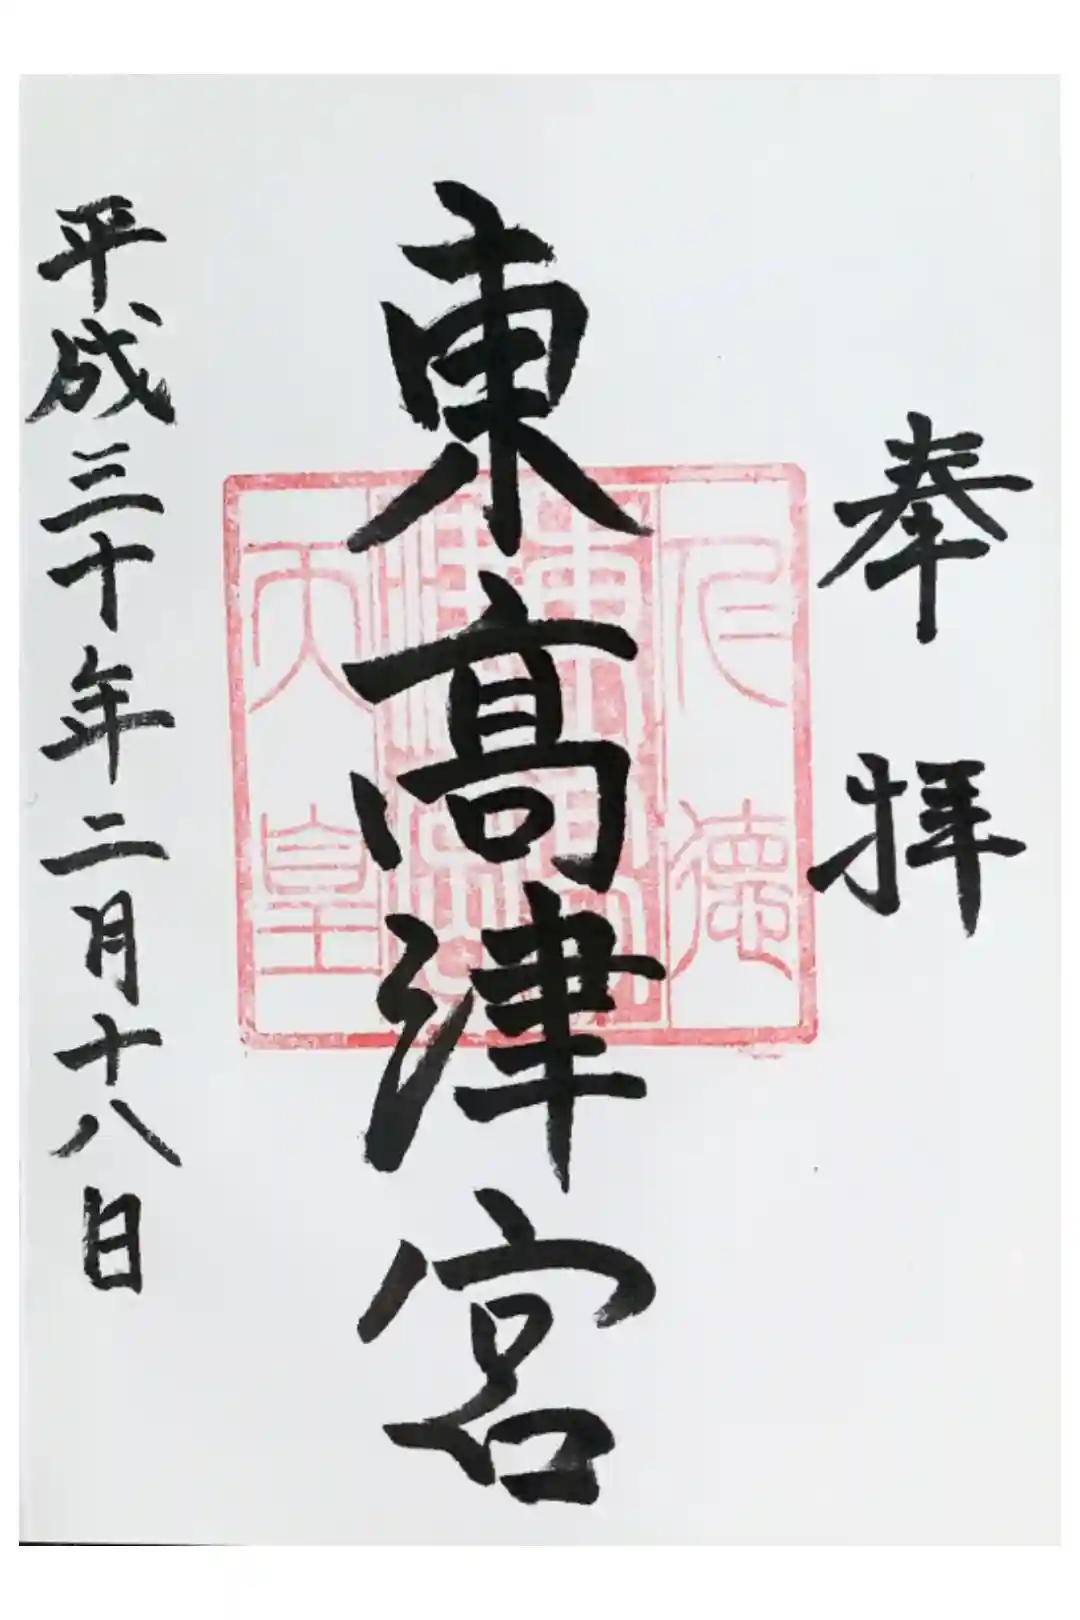 奉拝
東高津宮
仁徳
東高
津宮
天皇
平成三十年二月十八日